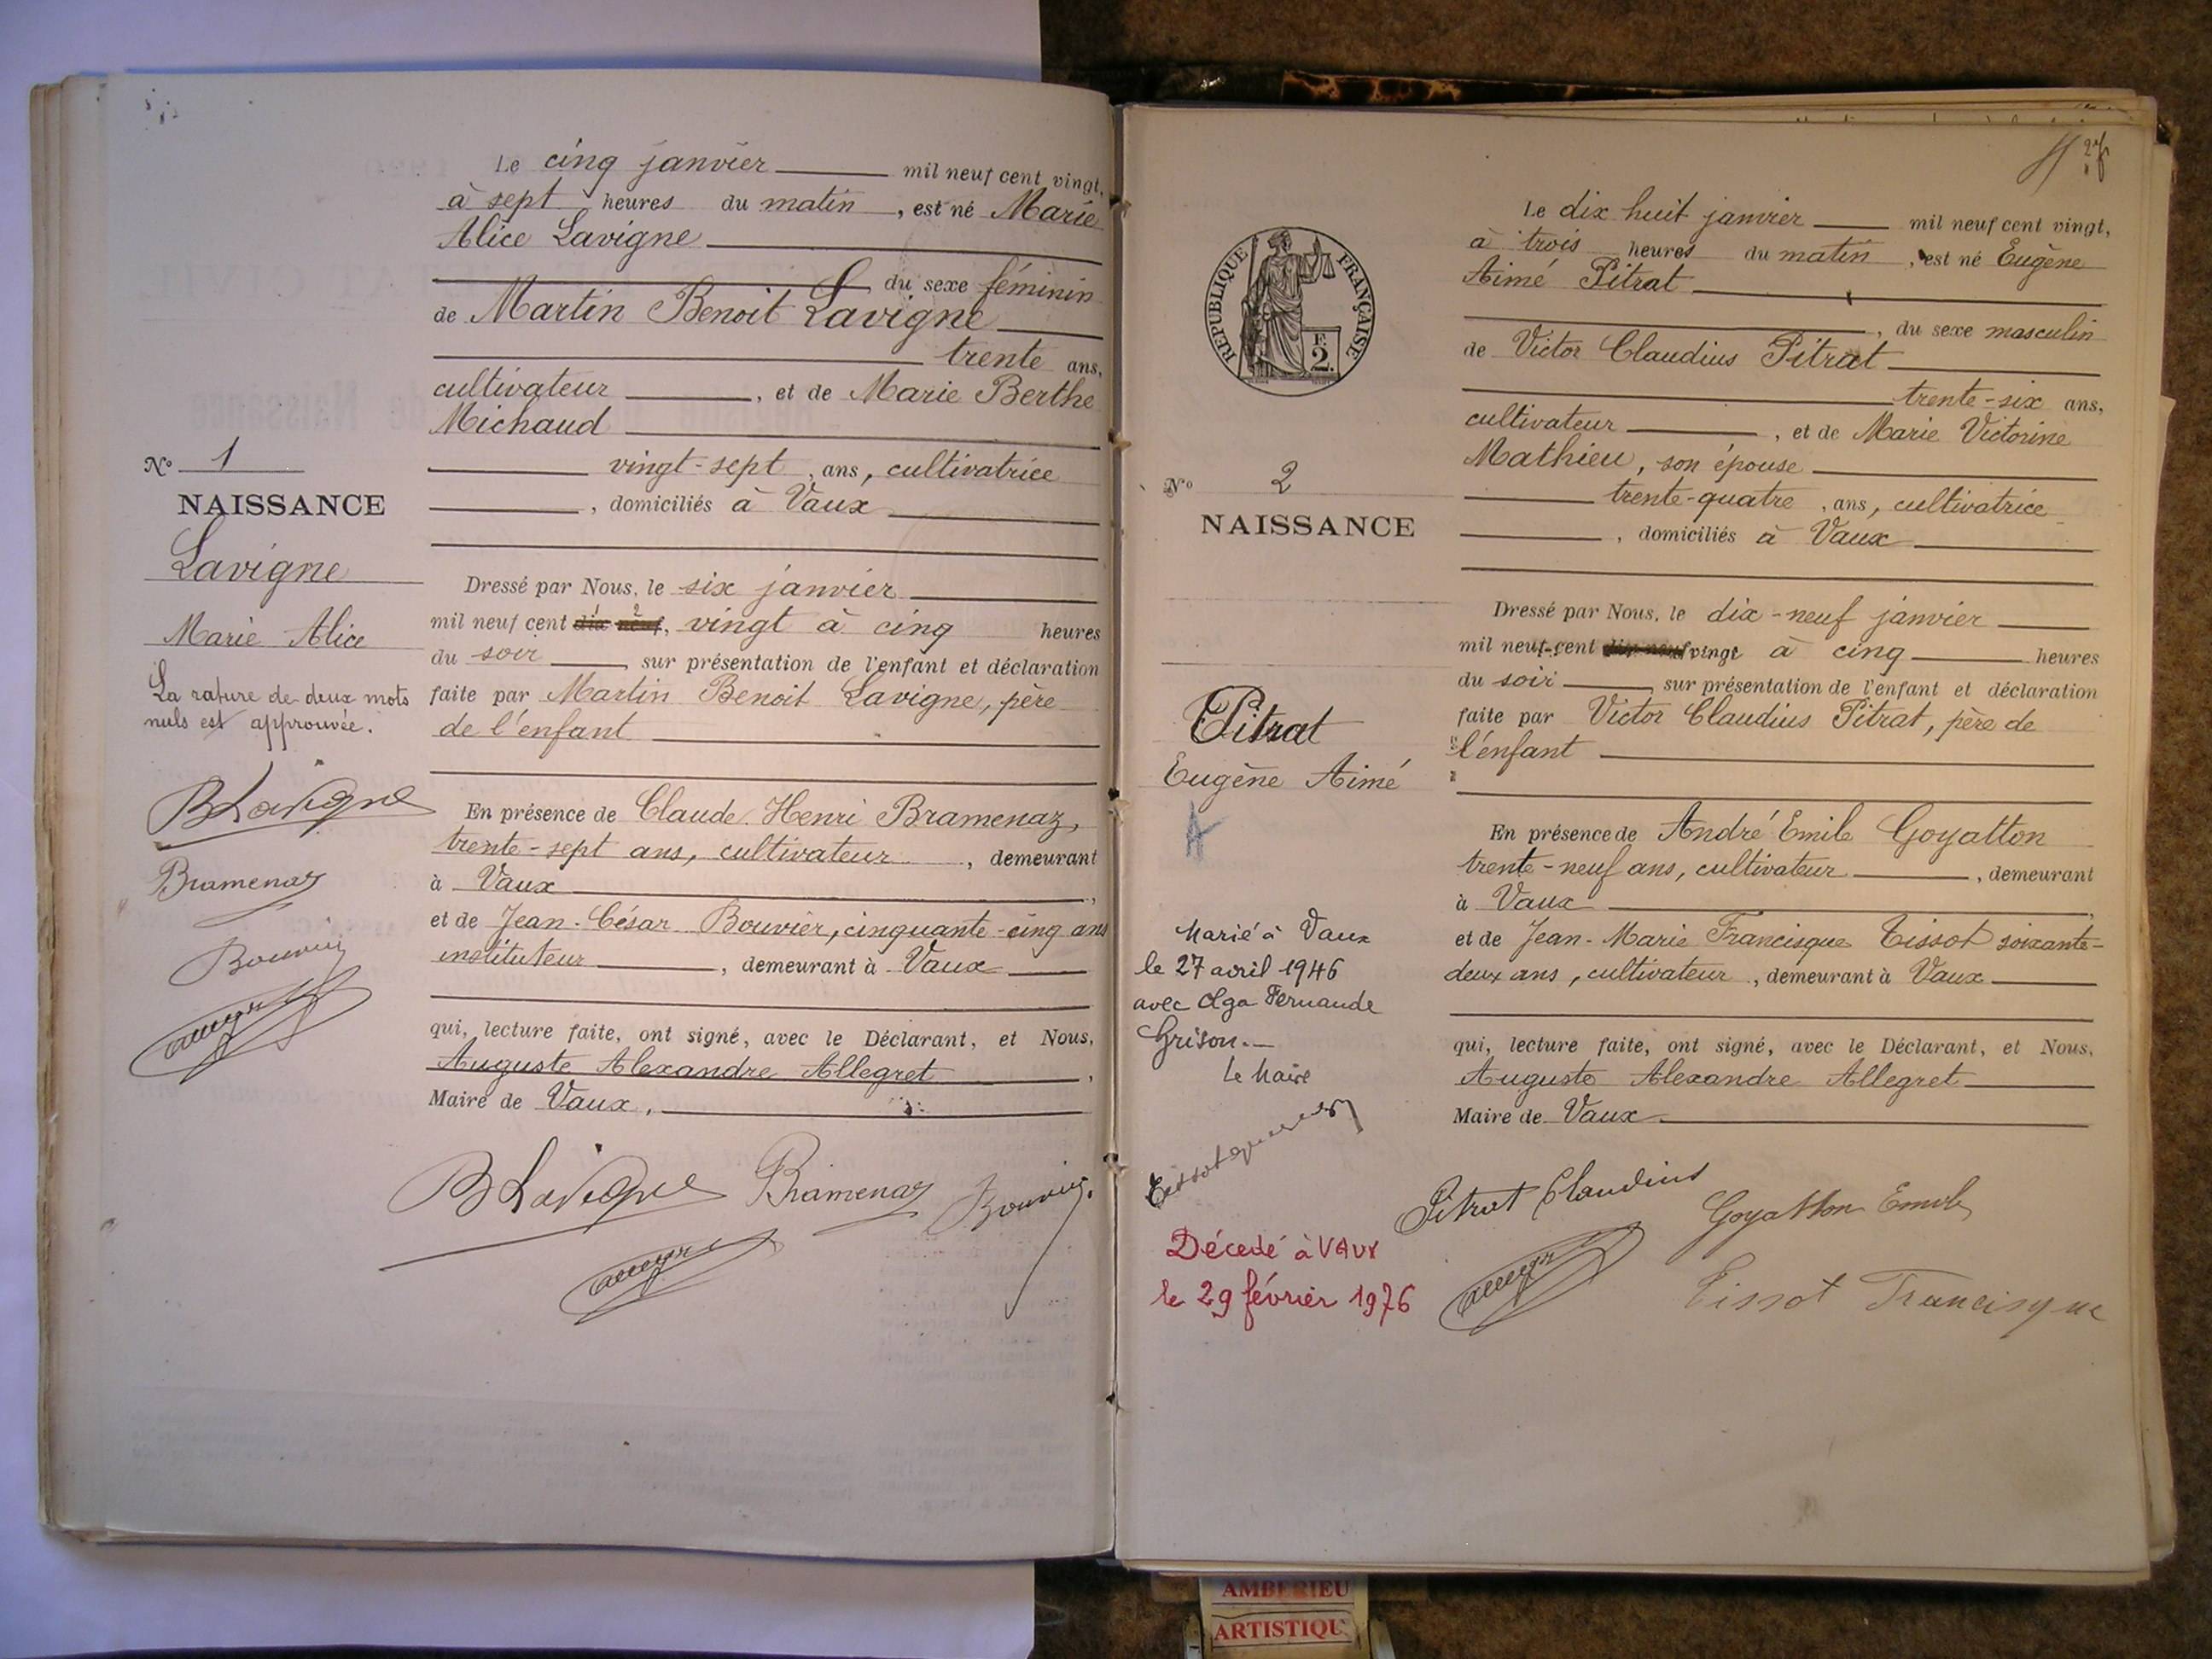 Le cinq janvier mil neuf cent vingt,
à sept heures du matin, est né Marie
Alice Lavigne
du sexe féminin
de Martin Benoit Lavigne
trente ans,
cultivateur, et de Marie Berthe
Michaud
vingt-sept, ans, cultivatrice
, domiciliés à Vaux
Dressé par Nous, le six janvier
mil neuf cent dix neuf, vingt à cinq heures
du soir, sur présentation de l'enfant et déclaration
faite par Martin Benoit Lavigne, père
de l'enfant
En présence de Claude Henri Bramenaz,
trente-sept ans, cultivateur, demeurant
à Vaux,
et de Jean-César Bouvier, cinquante-cinq ans
instituteur, demeurant à Vaux
qui, lecture faite, ont signé, avec le Déclarant, et Nous,
Auguste Alexandre Allegret,
Maire de Vaux.
BLavigne Bramenaz Bouvier
N° 1
NAISSANCE
Lavigne
Marie Alice
La rature de deux mots
nuls est approuvée.
BLavigne
Bramenaz
Bouvier
REPUBLIQUE FRANÇAISE
F.
2.
N° 2
NAISSANCE
Pitrat
Eugène Aimé
Marié à Vaux
le 27 avril 1946
avec Olga Fernande
Grison.-
Le Maire
Décedé à VAUX
le 29 février 1976
Le dix huit janvier mil neuf cent vingt,
à trois heures du matin, est né Eugène
Aimé Pitrat
, du sexe masculin
de Victor Claudius Pitrat
trente-six ans,
cultivateur, et de Marie Victorine
Mathieu, son épouse
trente-quatre, ans, cultivatrice
, domiciliés à Vaux
Dressé par Nous, le dix-neuf janvier
mil neuf-cent dix-neuf vingt à cinq heures
du soir, sur présentation de l'enfant et déclaration
faite par Victor Claudius Pitrat, père de
l'enfant
En présence de André Emile Goyatton
trente-neuf ans, cultivateur, demeurant
à Vaux,
et de Jean-Marie Francisque Tissot soixante-
deux ans, cultivateur, demeurant à Vaux
qui, lecture faite, ont signé, avec le Déclarant, et Nous,
Auguste Alexandre Allegret
Maire de Vaux
Pitrat Claudius Goyatton Emile
Tissot Francisque
AMBERIEU
ARTISTIQU